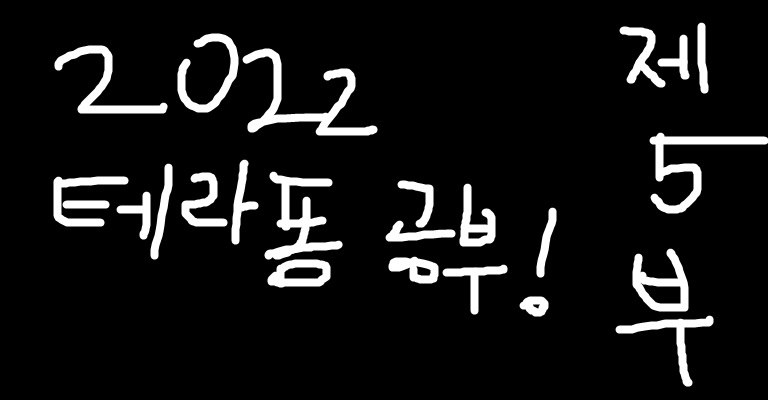 2022
테라폼 공부!
제
5
부